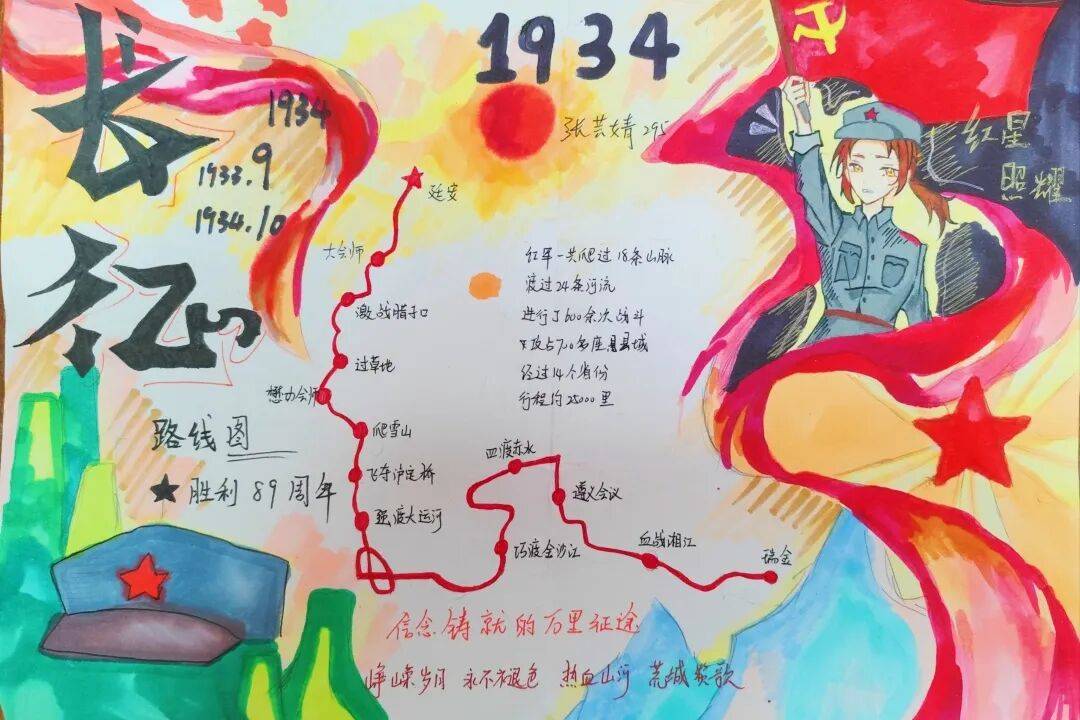 长征
1934
1934
1933.9
1934.10
张芸婧 295
红星
照耀
延安
大会师
激战腊子口
过草地
懋功会师
爬雪山
飞夺泸定桥
强渡大运河
四渡赤水
遵义会议
巧渡金沙江
血战湘江
瑞金
红军一共爬过18条山脉
渡过24条河流
进行了600余次战斗
攻占700多座县城
经过14个省份
行程约25000里
路线图
★胜利89周年
信念铸就的万里征途
峥嵘岁月 永不褪色 热血山河